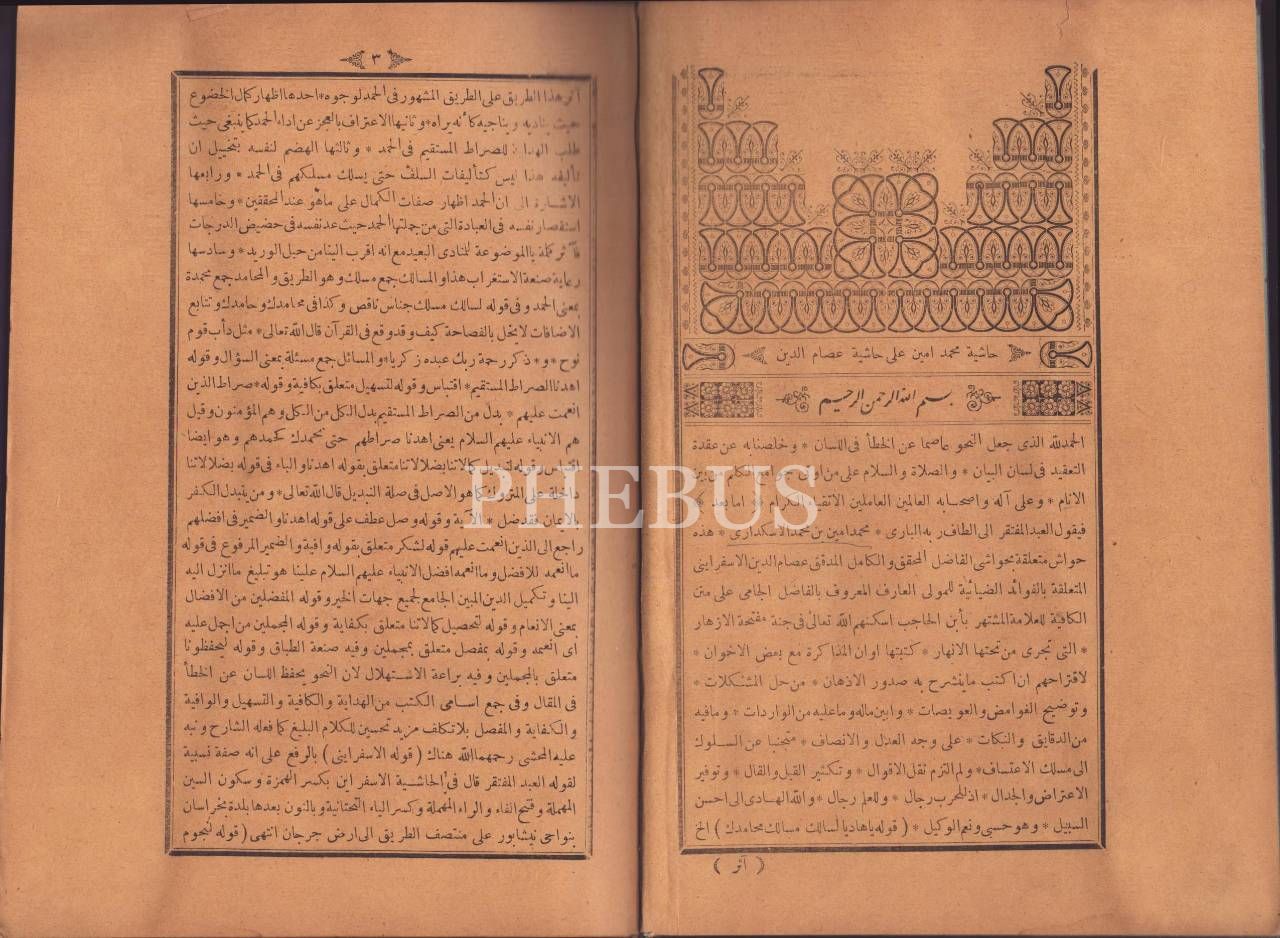 حاشية محمد امين على حاشية عصام الدين
بسم الله الرحمن الرحيم
الحمدلله الذى جعل النحو عاصما عن الخطأ فى اللسان * وخلصنا به عن عقدة
التعقيد فى لسان البيان * والصلاة والسلام على من اوتى جوامع الكلم من بين
الانام * وعلى آله واصحابه العالمين العاملين الاتقياء الكرام * اما بعد *
فيقول العبد المفتقر الى الطاف ربه البارى * محمد امين بن محمد الاسكدارى * هذه
حواش متعلقة بحواشى الفاضل المحقق والكامل المدقق عصام الدين الاسفراينى
المتعلقة بالفوائد الضيائية للمولى العارف المعروف بالفاضل الجامى على متن
الكافية للعلامة المشتهر بأبن الحاجب اسكنهم الله تعالى فى جنة مفتحة الازهار
* التى تجرى من تحتها الانهار * كتبتها اوان المذاكرة مع بعض الاخوان *
لاقتراحهم ان اكتب ما ينشرح به صدور الاذهان * من حل المشكلات *
وتوضيح الغوامض والعويصات * وابين ماله وما عليه من الواردات * وما فيه
من الدقايق والنكات * على وجه العدل والانصاف * متجنبا عن السلوك
الى مسلك الاعتساف * ولم التزم نقل الاقوال * وتكثير القيل والقال * وتوفير
الاعتراض والجدال * اذ للحرب رجال * وللعلم رجال * والله الهادى الى احسن
السبيل * وهو حسبى ونعم الوكيل * ( قوله يا هاديا لسالك مسالك محامدك ) الخ
( آثر )
٣
آثر هذا الطريق على الطريق المشهور فى الحمد لوجوه * احدها اظهار كمال الخضوع
حيث يناديه ويناجيه كأنه يراه * وثانيها الاعتراف بالعجز عن اداء الحمد كما ينبغى حيث
طلب الهداية للصراط المستقيم فى الحمد * وثالثها الهضم لنفسه بتخييل ان
تأليفه هذا ليس كتأليفات السلف حتى يسلك مسلكهم فى الحمد * ورابعها
الاشارة الى ان الحمد اظهار صفات الكمال على ما هو عند المحققين * وخامسها
استقصار نفسه فى العبادة التى من جملتها الحمد حيث عد نفسه فى حضيض الدرجات
فآثر كلمة يا الموضوعة لمنادى البعيد مع انه اقرب الينا من حبل الوريد * وسادسها
رعاية صنعة الاستغراب هذا و المسالك جمع مسلك وهو الطريق والمحامد جمع محمدة
بمعنى الحمد وفى قوله لسالك مسلك جناس ناقص وكذا فى محامدك وحامدك وتتابع
الاضافات لا يخل بالفصاحة كيف وقد وقع فى القرآن قال الله تعالى * مثل دأب قوم
نوح * و * ذكر رحمة ربك عبده زكريا * والمسائل جمع مسئلة بمعنى السؤال وقوله
اهدنا الصراط المستقيم * اقتباس وقوله لتسهيل متعلق بكافية وقوله * صراط الذين
انعمت عليهم * بدل من الصراط المستقيم بدل الكل من الكل وهم المؤمنون وقيل
هم الانبياء عليهم السلام يعنى اهدنا صراطهم حتى نحمدك كحمدهم وهو ايضا
اقتباس وقوله لتبديل كمالاتنا بضلالاتنا متعلق بقوله اهدنا والباء فى قوله بضلالاتنا
داخلة على المتروك كما هو الاصل فى صلة التبديل قال الله تعالى * ومن يتبدل الكفر
بالايمان فقد ضل * الآية وقوله وصل عطف على قوله اهدنا والضمير فى افضلهم
راجع الى الذين انعمت عليهم قوله لشكر متعلق بقوله وافية والضمير المرفوع فى قوله
ما انعمه للافضل وما انعمه افضل الانبياء عليهم السلام علينا هو تبليغ ما انزل اليه
الينا وتكميل الدين المبين الجامع لجميع جهات الخير وقوله المفضلين من الافضال
بمعنى الانعام وقوله لتحصيل كمالاتنا متعلق بكفاية وقوله المجملين من اجمل عليه
اى انعمه وقوله بمفصل متعلق بمجملين وفيه صنعة الطباق وقوله ليحفظونا
متعلق بالمجملين وفيه براعة الاستهلال لان النحو يحفظ اللسان عن الخطأ
فى المقال وفى جمع اسامى الكتب من الهداية والكافية والتسهيل والوافية
والكفاية والمفصل بلا تكلف مزيد تحسين للكلام البليغ كما فعله الشارح ونبه
عليه المحشى رحمهما الله هناك ( قوله الاسفراينى ) بالرفع على انه صفة نسبية
لقوله العبد المفتقر قال فى الحاشية الاسفراين بكسر الهمزة وسكون السين
المهملة وفتح الفاء والراء المهملة وكسر الياء التحتانية وبالنون بعدها بلدة بخراسان
بنواحى نيشابور على منتصف الطريق الى ارض جرجان انتهى ( قوله لنجوم
PHEBUS